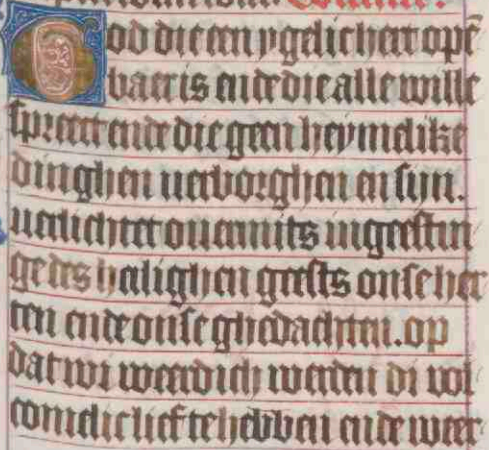 God die een ygelicher ope̅
baer is ende die alle wille
sprect ende die geen heymelike
dinghen verborghen en sijn.
verlichtet ouermits ingeestin
ge des heilighen geests onse her
ten ende onse ghedachten. op
dat wi weerdich werden di vol
comelic lief te hebben ende weer